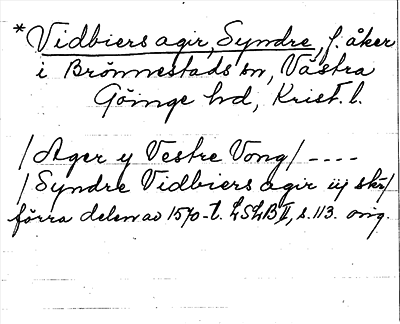 *Vidbiers agir, Syndre, f. åker
i Brönnestads sn, Västra
Göinge hd, Krist. l.
/Ager y Vestre Vong/ ----
/Syndre Vidbiers agir iij skr/
förra delen av 1570-t. LSLB II, s. 113. orig.